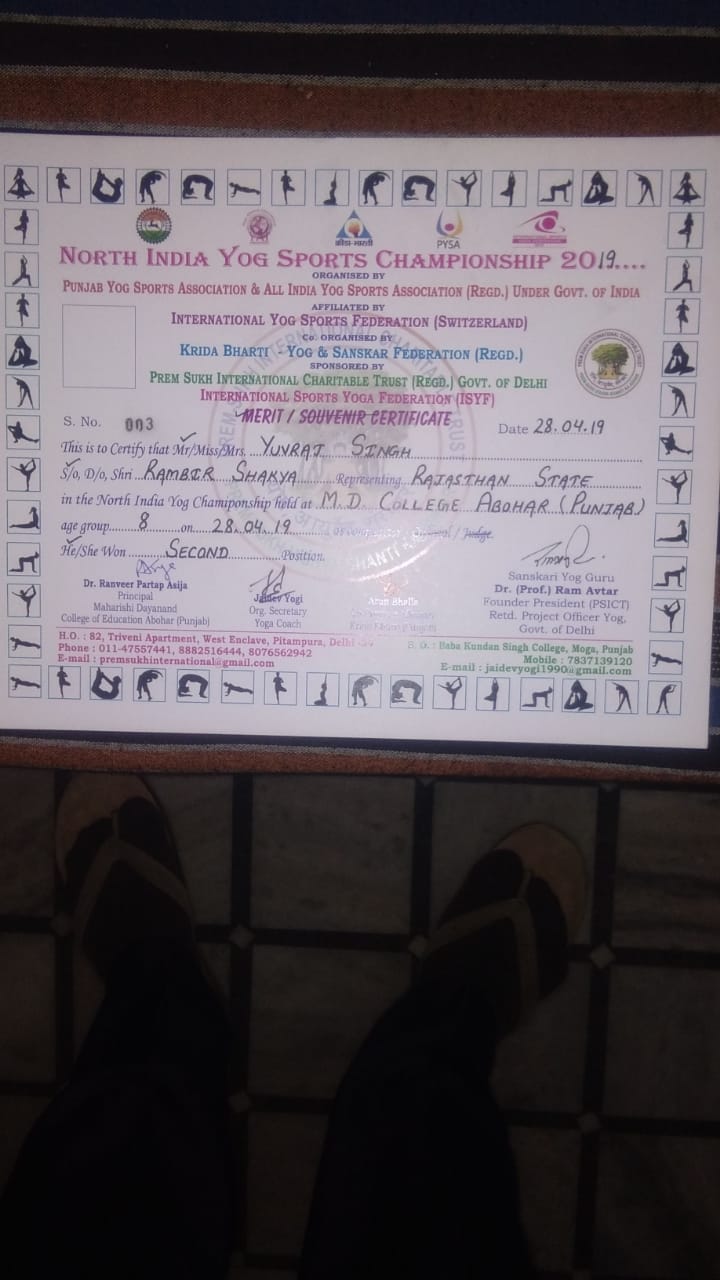 क्रीडा-भारती
PYSA
NORTH INDIA YOG SPORTS CHAMPIONSHIP 2019....
ORGANISED BY
PUNJAB YOG SPORTS ASSOCIATION & ALL INDIA YOG SPORTS ASSOCIATION (REGD.) UNDER GOVT. OF INDIA
AFFILIATED BY
INTERNATIONAL YOG SPORTS FEDERATION (SWITZERLAND)
Co. ORGANISED BY
KRIDA BHARTI - YOG & SANSKAR FEDERATION (REGD.)
SPONSORED BY
PREM SUKH INTERNATIONAL CHARITABLE TRUST (REGD.) GOVT. OF DELHI
INTERNATIONAL SPORTS YOGA FEDERATION (ISYF)
MERIT / SOUVENIR CERTIFICATE
S. No. 003
Date 28.04.19
This is to Certify that Mr/Miss/Mrs. YUVRAJ SINGH
S/o, D/o, Shri RAMBIR SHAKYA Representing RAJASTHAN STATE
in the North India Yog Chamiponship held at M.D COLLEGE ABOHAR (PUNJAB)
age group 8 on 28.04.19 / Judge.
He/She Won SECOND Position.
Dr. Ranveer Partap Asija
Principal
Maharishi Dayanand
College of Education Abohar (Punjab)
Jaidev Yogi
Org. Secretary
Yoga Coach
Arun Bhalla
Sanskari Yog Guru
Dr. (Prof.) Ram Avtar
Founder President (PSICT)
Retd. Project Officer Yog,
Govt. of Delhi
H.O. : 82, Triveni Apartment, West Enclave, Pitampura, Delhi
Phone : 011-47557441, 8882516444, 8076562942
E-mail : premsukhinternational@gmail.com
S. O. : Baba Kundan Singh College, Moga, Punjab
Mobile : 7837139120
E-mail : jaidevyogi1990@gmail.com